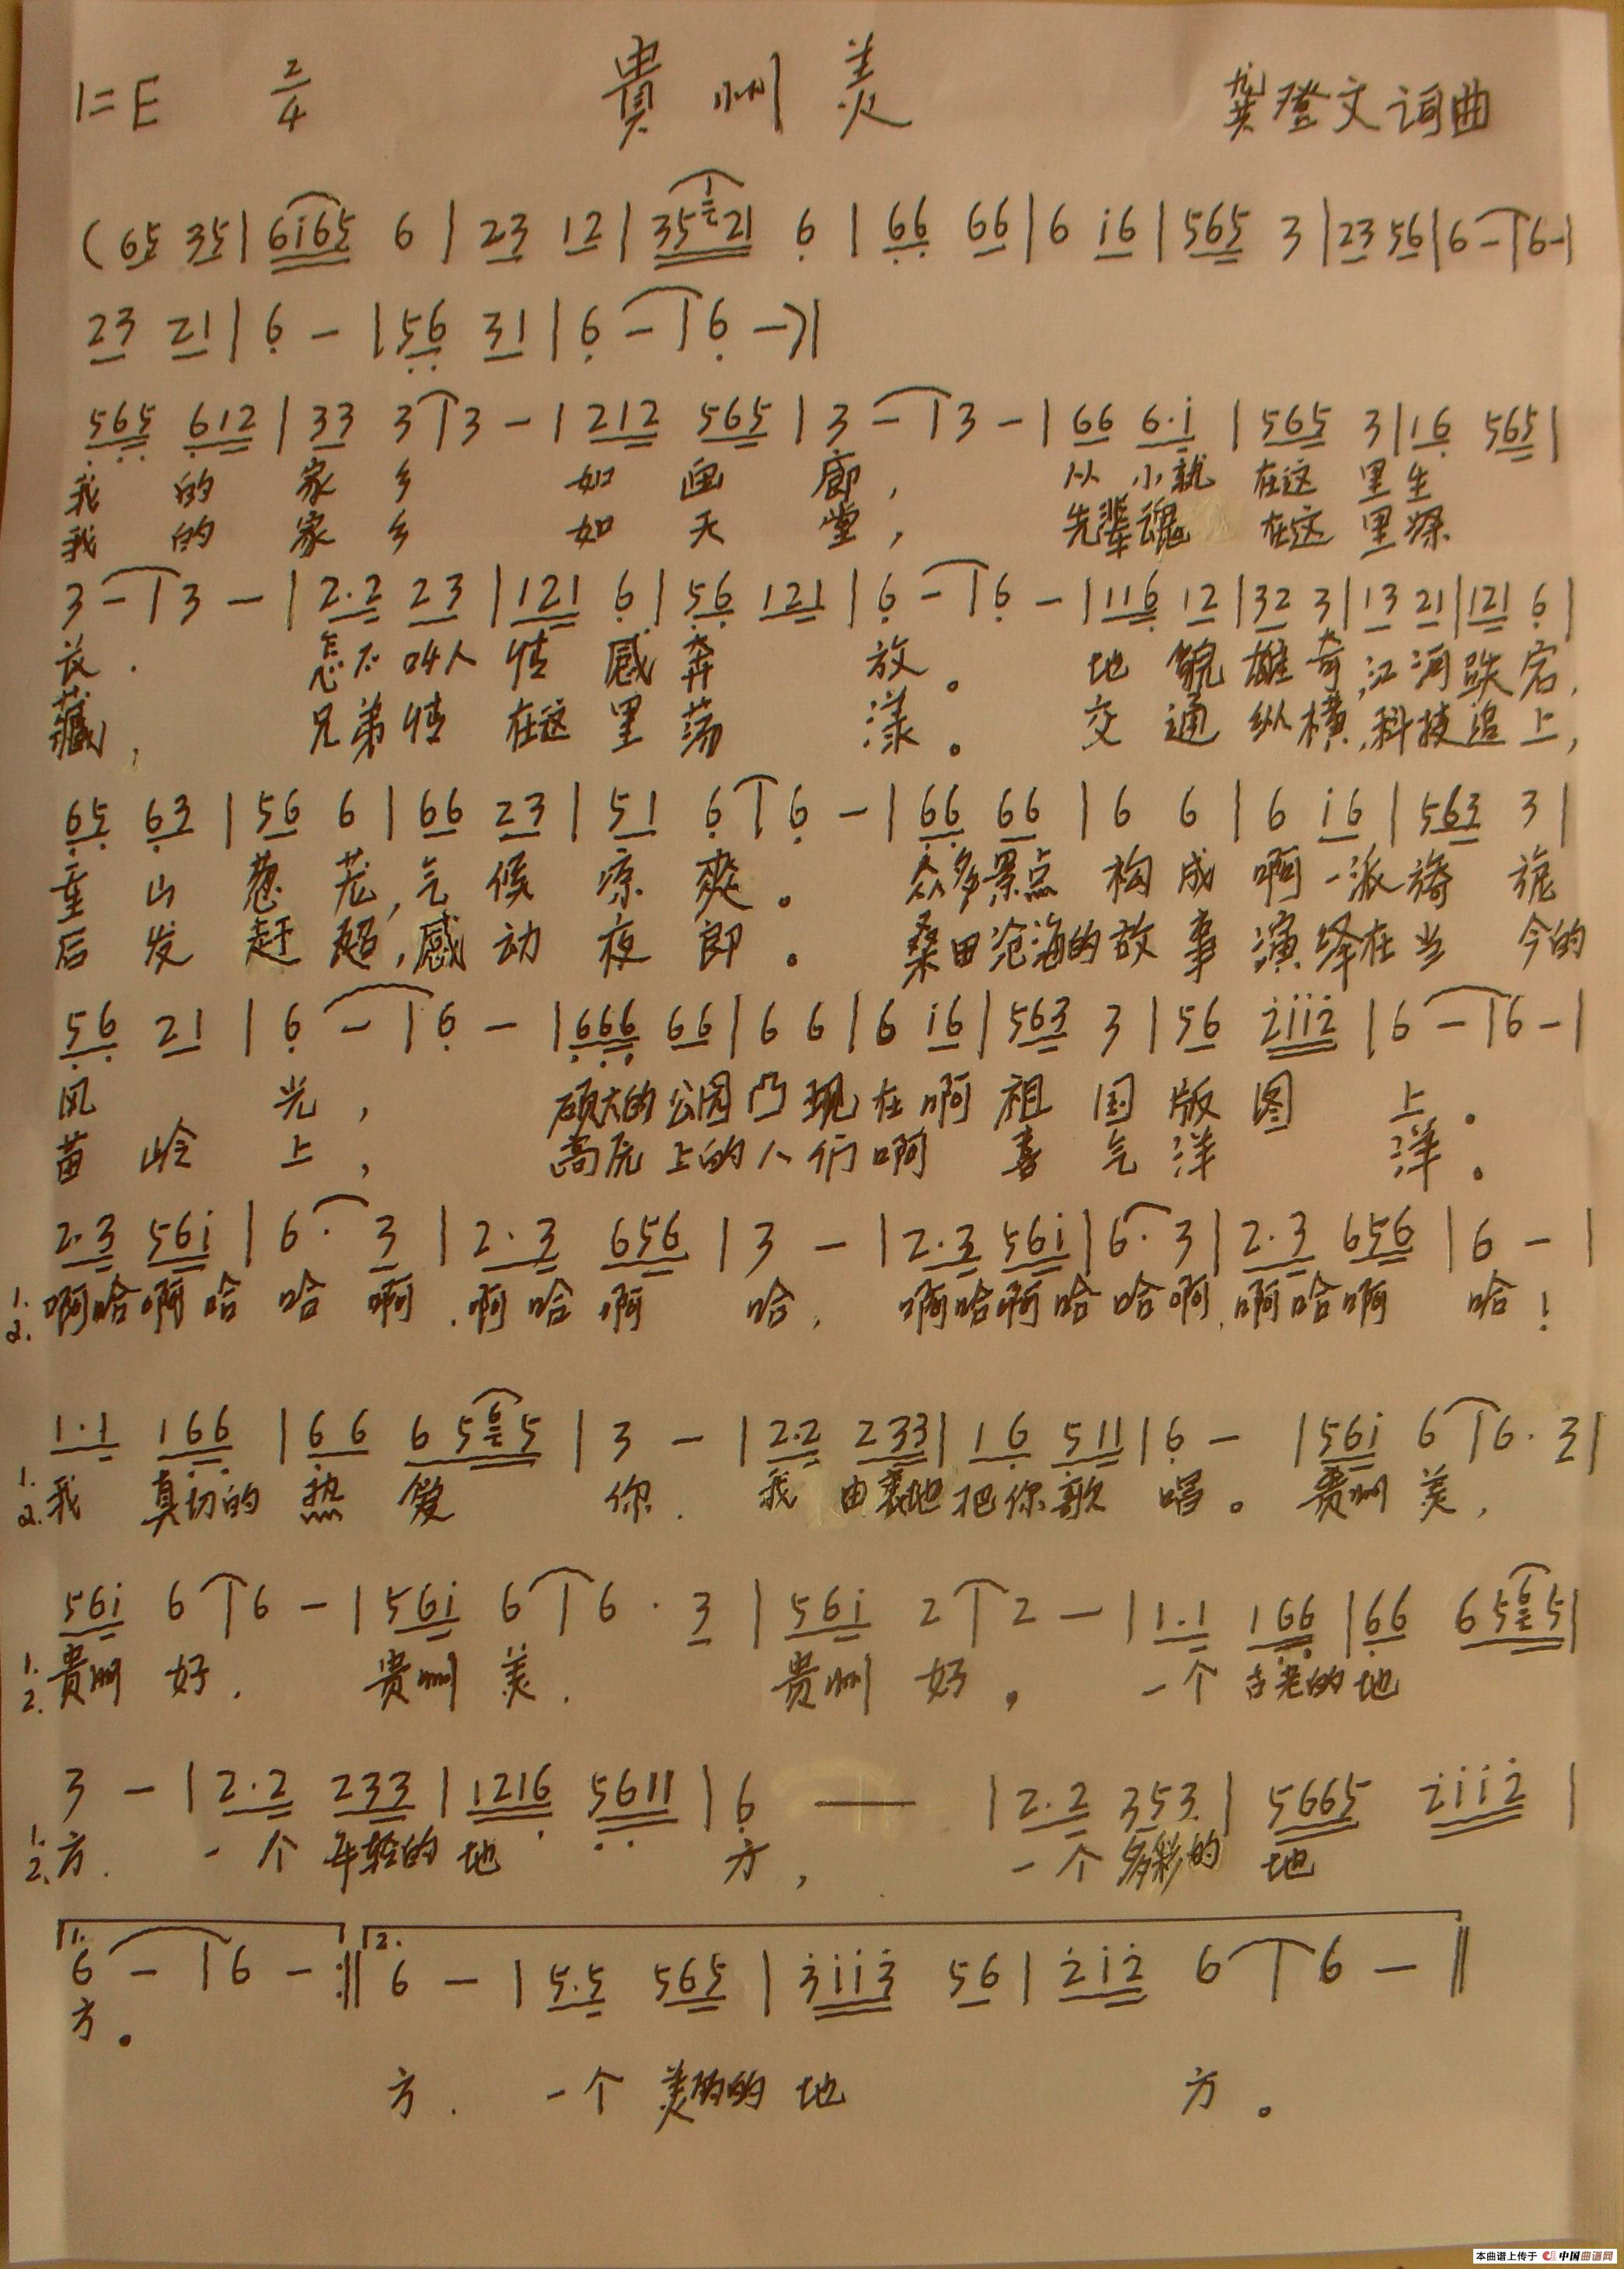 1=E 2/4 貴州美 龚登文词曲
(65 35|6i65 6|23 12|35221 6|66 66|6 i6|565 3|23 56|6-|6-|
23 21|6 -|56 31|6 -|6 -)|
565 612|33 3|3 -|212 565|3 -|3 -|66 6·i|565 3|16 565|
我 的 家 乡 如 画 廊, 从 小就 在这 里生
我 的 家 乡 如 天 堂, 先辈魂 在这 里深
3 -|3 -|2·2 23|121 6|56 121|6 -|6 -|116 12|32 3|13 21|121 6|
长. 怎不叫人 情 感 奔 放。 地 貌 雄 奇,江 河 跌 宕,
藏, 兄弟情 在这 里 荡 漾。 交 通 纵 横,科 技 追 上,
65 63|56 6|66 23|51 6|6 -|66 66|6 6|6 i6|563 3|
重 山 葱 茏,气 候 凉 爽。 众多景点 构 成 啊 一派 旖 旎
后 发 赶 超,感 动 夜 郎。 桑田沧海的 故 事 演 绎在 当 今的
56 21|6 -|6 -|666 66|6 6|6 i6|563 3|56 2ii2|6 -|6 -|
风 光, 硕大的 公园 凸 现 在 啊 祖 国 版 图 上.
苗 岭 上, 高原 上的 人 们 啊 喜 气 洋 洋。
2·3 56i|6· 3|2·3 656|3 -|2·3 56i|6· 3|2·3 656|6 -|
1. 2. 啊哈啊 哈 哈 啊.啊 哈 啊 哈, 啊哈啊 哈 哈 啊.啊 哈 啊 哈!
1·1 166|66 6565|3 -|2·2 233|16 511|6 -|56i 6|6· 3|
1. 2. 我 真切的 热 爱 你. 我 由衷地 把你 歌 唱。 贵州 美,
56i 6|6 -|56i 6|6 · 3|56i 2|2 -|1·1 166|66 6565|
1. 2. 贵州 好. 贵州 美. 贵州 好, 一个 古老的 地
3 -|2·2 233|1216 5611|6 —|2·2 353|5665 2ii2|
1. 2. 方. 一个 年轻的 地 方, 一个 多彩的 地
1. 6 -|6 -:‖ 2. 6 -|5·5 565|3ii3 56|2i2 6|6 -‖
方。
方. 一个 美丽的 地 方。
本曲谱上传于 中国曲谱网